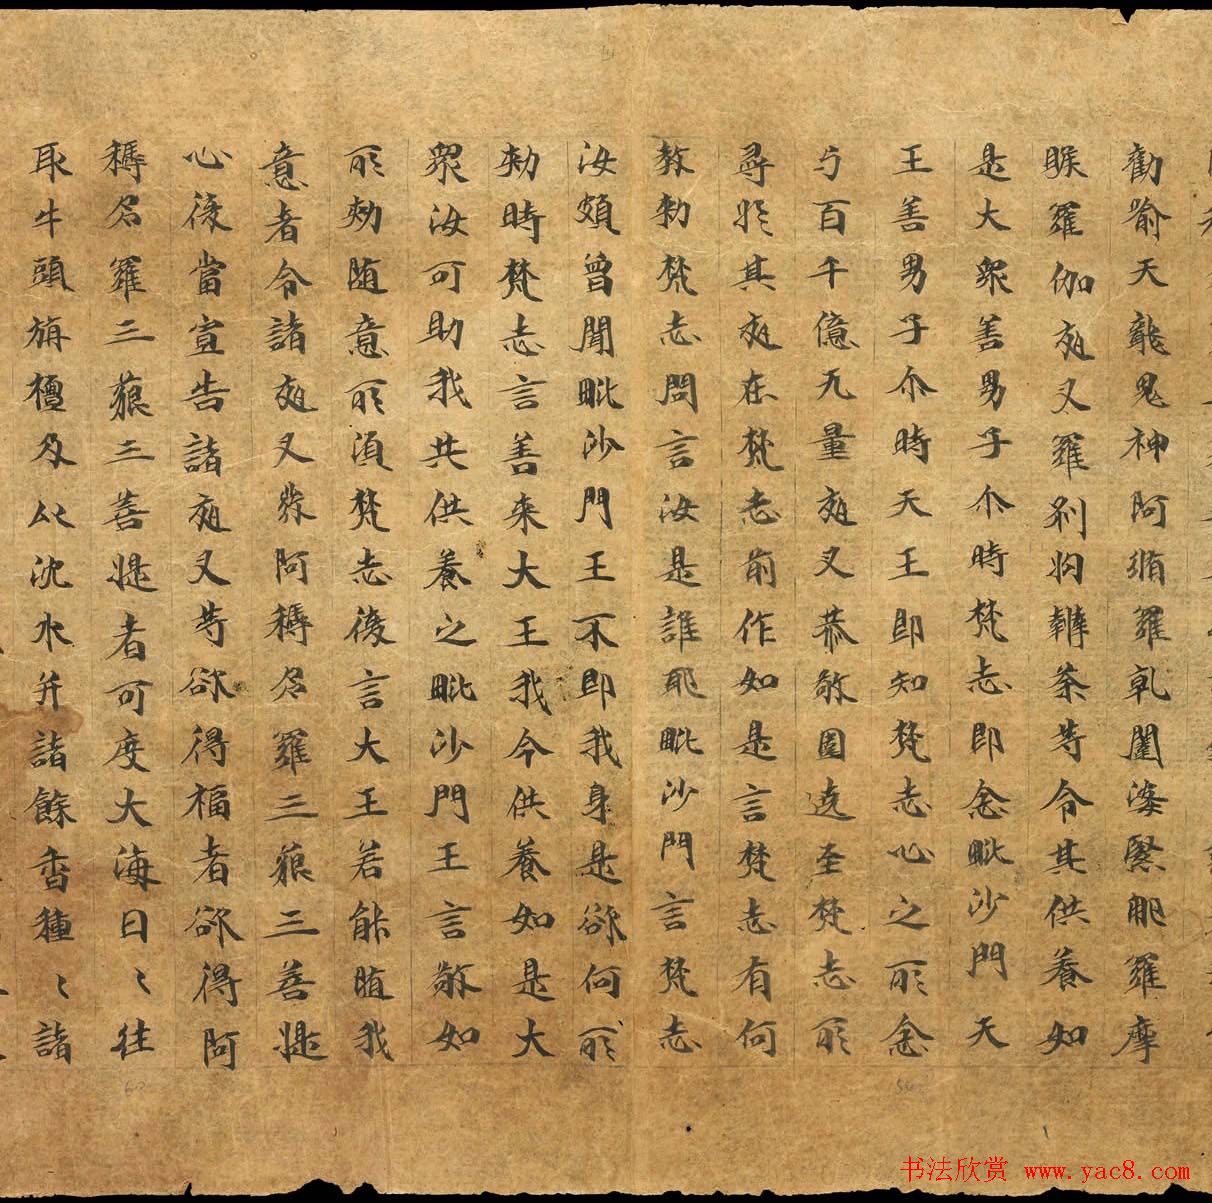 勸喻天龍鬼神阿脩羅乹闥婆緊那羅摩
睺羅伽夜叉羅刹鳩槃荼等令其供養如
是大衆善男子尒時梵志即念毗沙門天
王善男子尒時天王即知梵志心之所念
与百千億无量夜叉恭敬圍遶至梵志所
尋於其夜在梵志前作如是言梵志有何
教勑梵志問言汝是誰耶毗沙門言梵志
汝頗曾聞毗沙門王不即我身是欲何所
勑時梵志言善来大王我今供養如是大
衆汝可助我共供養之毗沙門王言敬如
所勑随意所湏梵志復言大王若能随我
意者令諸夜叉發阿耨多羅三藐三菩提
心復當宣告諸夜叉等欲得福者欲得阿
耨多羅三藐三菩提者可度大海日〻往
取牛頭旃檀及以沈水并諸餘香種〻諸
书法欣赏 www.yac8.com